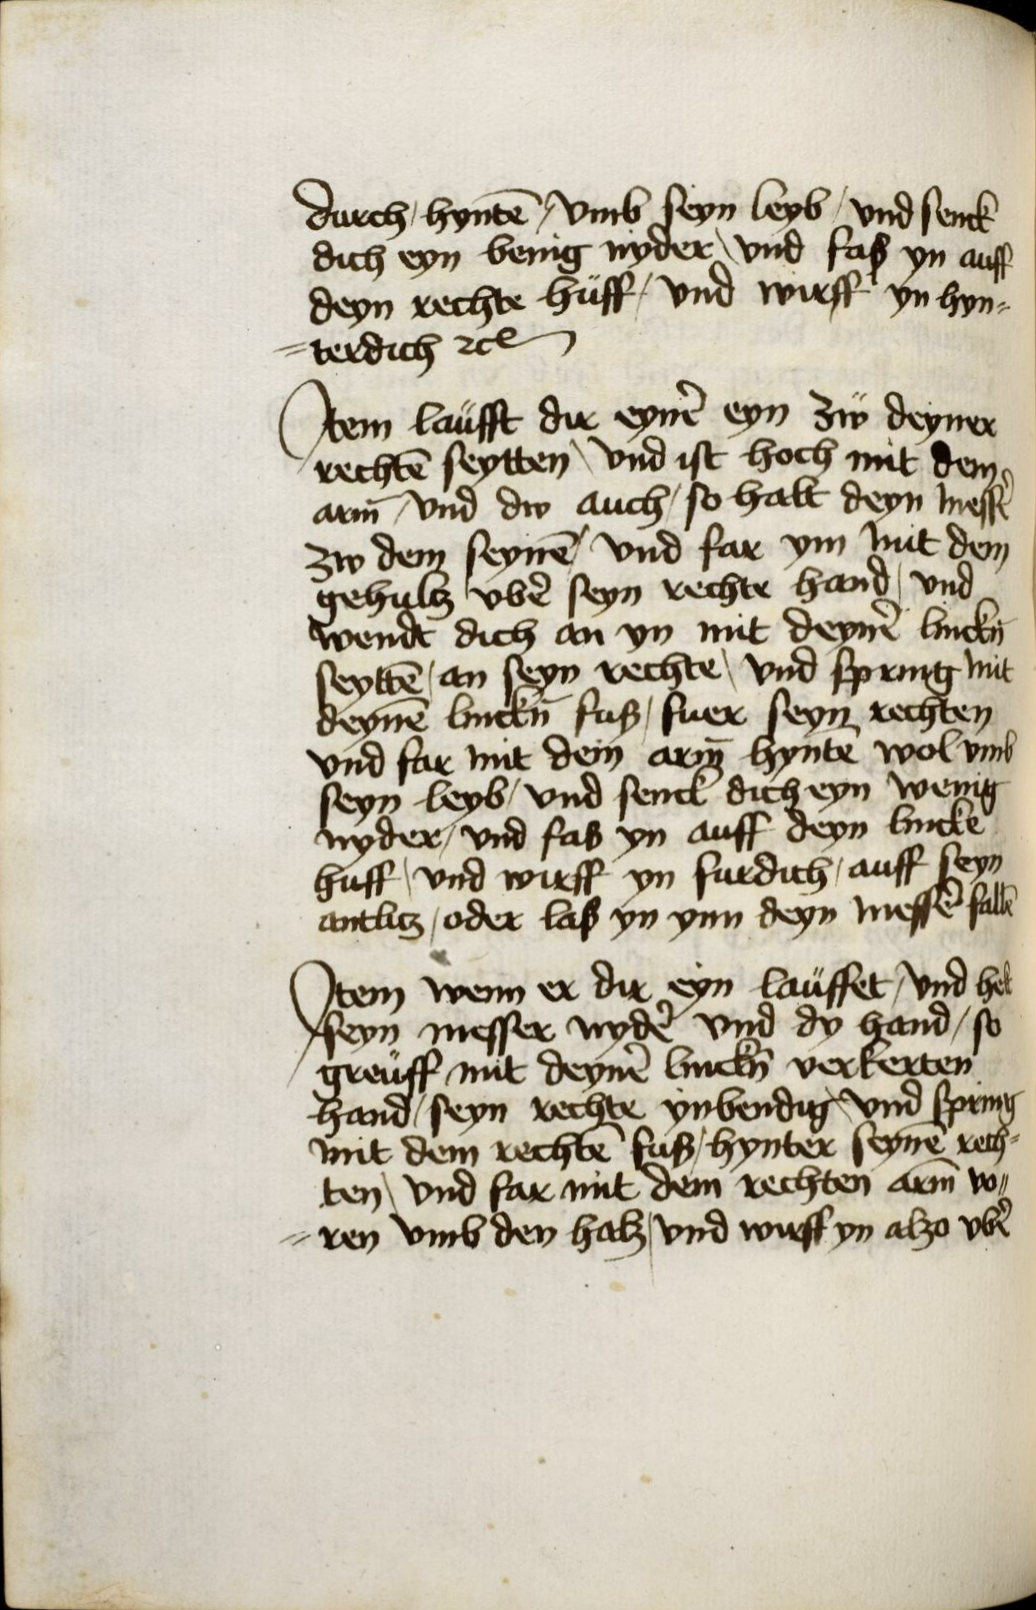 durch / hyntē / vmb seyn leyb / vnd senck
dich eyn benig nyder \ vnd fasß yn auff
deyn rechte hüff / vnd wirff yn hyn=
=terdich ⁊cͤ
Item laüfft dir eynē eyn zẅ deyner
rechtē seytten \ vnd ist hoch mit dem
arm̄ / vnd dw auch / so halt deyn messē
zw dem seynē / vnd far ym mit dem
gehultz / vbē seyn rechte hand / vnd
wendt dich an yn mit deynē linckn̄
seyttē / an seyn rechte \ vnd spring mit
deynē linckn̄ fuß / fuer seyn rechten
vnd far mit dein arm̄ hyntē wol vmb
seyn leyb / vnd senck dich eyn wenig
nyder / vnd fas yn auff deyn lincke
huff \ vnd wirff yn furdich / auff seyn
antlitz / oder laß yn ynn deyn messē fallē
Item wenn er dir eyn laüffet / vnd helt
seyn messer nydē vnd dy hand / so
greüff mit deynē linckn̄ verkerten
hand / seyn rechte ynbendig \ vnd spring
mit dem rechtē fuß / hynter seynē rech=
ten \ vnd far mit dem rechten arm̄ vo=
=ren vmb den halz / vnd wirff yn alzo vbē